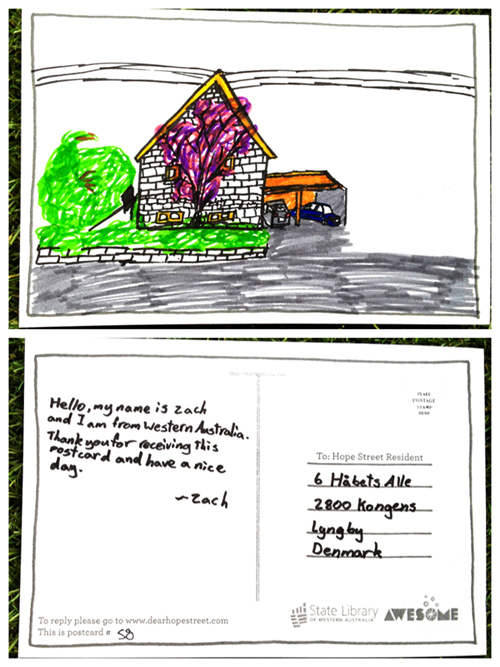 Hello, my name is Zach
and I am from Western Australia.
Thank you for receiving this
postcard and have a nice
day.
~Zach
PLACE
POSTAGE
STAMP
HERE
To: Hope Street Resident
6 Håbets Alle
2800 Kongens
Lyngby
Denmark
State Library
OF WESTERN AUSTRALIA
AWESOME
To reply please go to www.dearhopestreet.com
This is postcard # 58